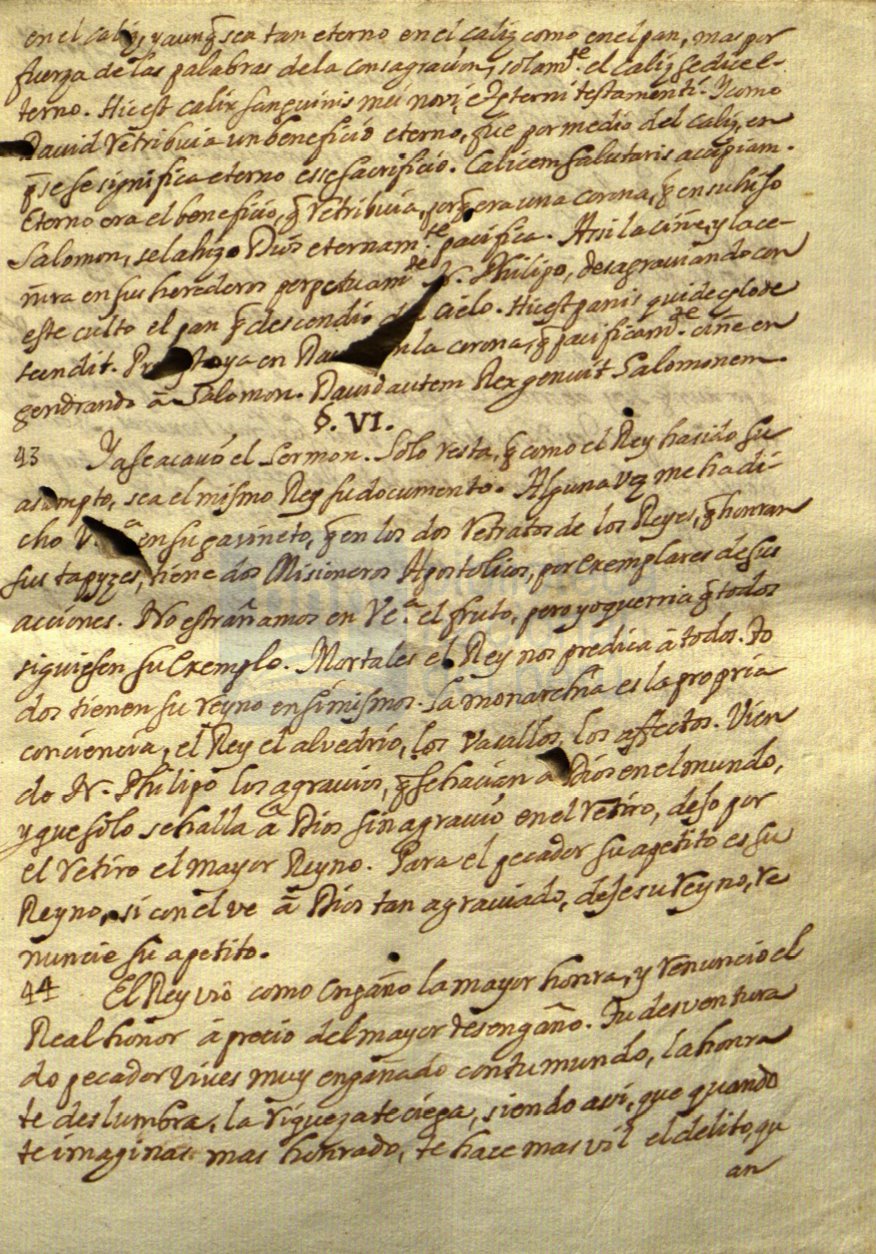 en el caliz, y aunq̃ sea tan eterno en el caliz como en el pan, mas por
fuerza de las palabras de la consagracion, solam.te el caliz se dice e-
terno. Hic est calix sanguinis mei novi, et æterni testamenti. Y como
David retribuia un beneficio eterno, fue por medio del caliz, en
q̃ se significa eterno esse sacrificio. Calicem salutaris accipiam.
Eterno era el beneficio, q̃ retribuia, porq̃ era una corona, q̃ en su hijo
Salomon, se la hizo Dios eternam.te pacifica. Assi la ciñe, y la ce-
ñira en sus herederos perpetuam.te N. Philipo, desagraviando con
este culto el pan q̃ descendio del cielo. Hic est panis qui de cęlo de
scendit. ya en la corona, q̃ pacificam.te ciñe en
gendrando â Salomon. David autem Rex genuit Salomonem.
§. VI.
43 Ya se acavó el Sermon. Solo resta, q̃ como el Rey ha sido su
asumpto, sea el mismo Rey su documento. Alguna vez me ha di-
cho V. en su gavineto, q̃ en los dos retratos de los Reyes, q̃ honran
sus tapyzes, tiene dos Misioneros Apostolicos, por exemplares de sus
acciones. No estrañamos en Ve.ª el fruto, pero yo querria q̃ todos
siguiesen su exemplo. Mortales el Rey nos predica â todos. To
dos tienen su reyno en si mismos. La monarchia es la propria
conciencia, el Rey el alvedrio, los vasallos los affectos. Vien
do N. Philipo los agravios, q̃ se hacian a Dios en el mundo,
y que sólo se halla â Dios sin agravio en el retiro, dejo por
el retiro el mayor Reyno. Para el pecador su apetito es su
Reyno, si con el ve â Dios tan agraviado, deje su reyno, re
nuncie su apetito.
44 El Rey vió como engaño la mayor honra, y renuncio el
Real honor â precio del mayor desengaño. Tu desventura
do pecador vives muy engañado con tu mundo, la honra
te deslumbra, la riqueza te ciega, siendo asi, que quando
te imaginas mas honrado, te hace mas vil el delito, qu
an